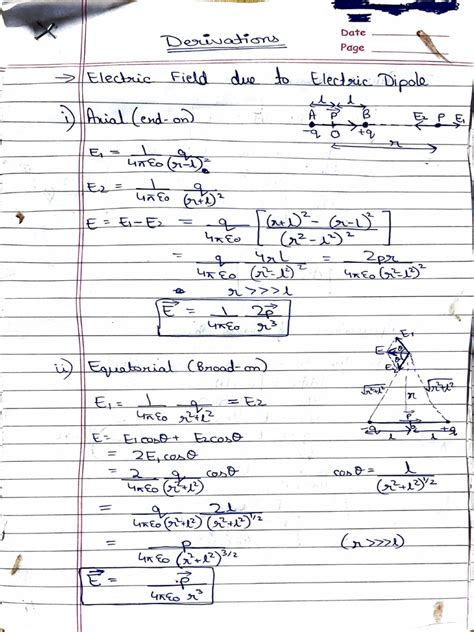 Derivations
Date
Page
→ Electric Field due to Electric Dipole
i) Axial (end-on)
l P⃗ l
A B E2 P E1
-q O +q
r
E1 = 1/4πε0 q/(r-l)2
E2 = 1/4πε0 q/(r+l)²
E = E1 - E2 = q/4πε0 [ (r+l)² - (r-l)² / (r² - l²)² ]
= q/4πε0 4rl/(r² - l²)² = 2pr/4πε0 (r² - l²)²
r >>> l
E⃗ = 1/4πε0 2p⃗/r³
ii) Equatorial (Broad-on)
E1
E
θ
E1 = 1/4πε0 q/r²+l² = E2
√r²+l² r √r²+l²
P⃗
-q l l +q
E = E1cosθ + E2cosθ
= 2E1cosθ
= 2/4πε0 q/(r²+l²) cosθ cosθ = l/(r²+l²)^1/2
= q/4πε0(r²+l²) 2l/(r²+l²)^1/2
= p/4πε0 (r²+l²)^3/2 (r>>>l)
E⃗ = p⃗/4πε0 r³